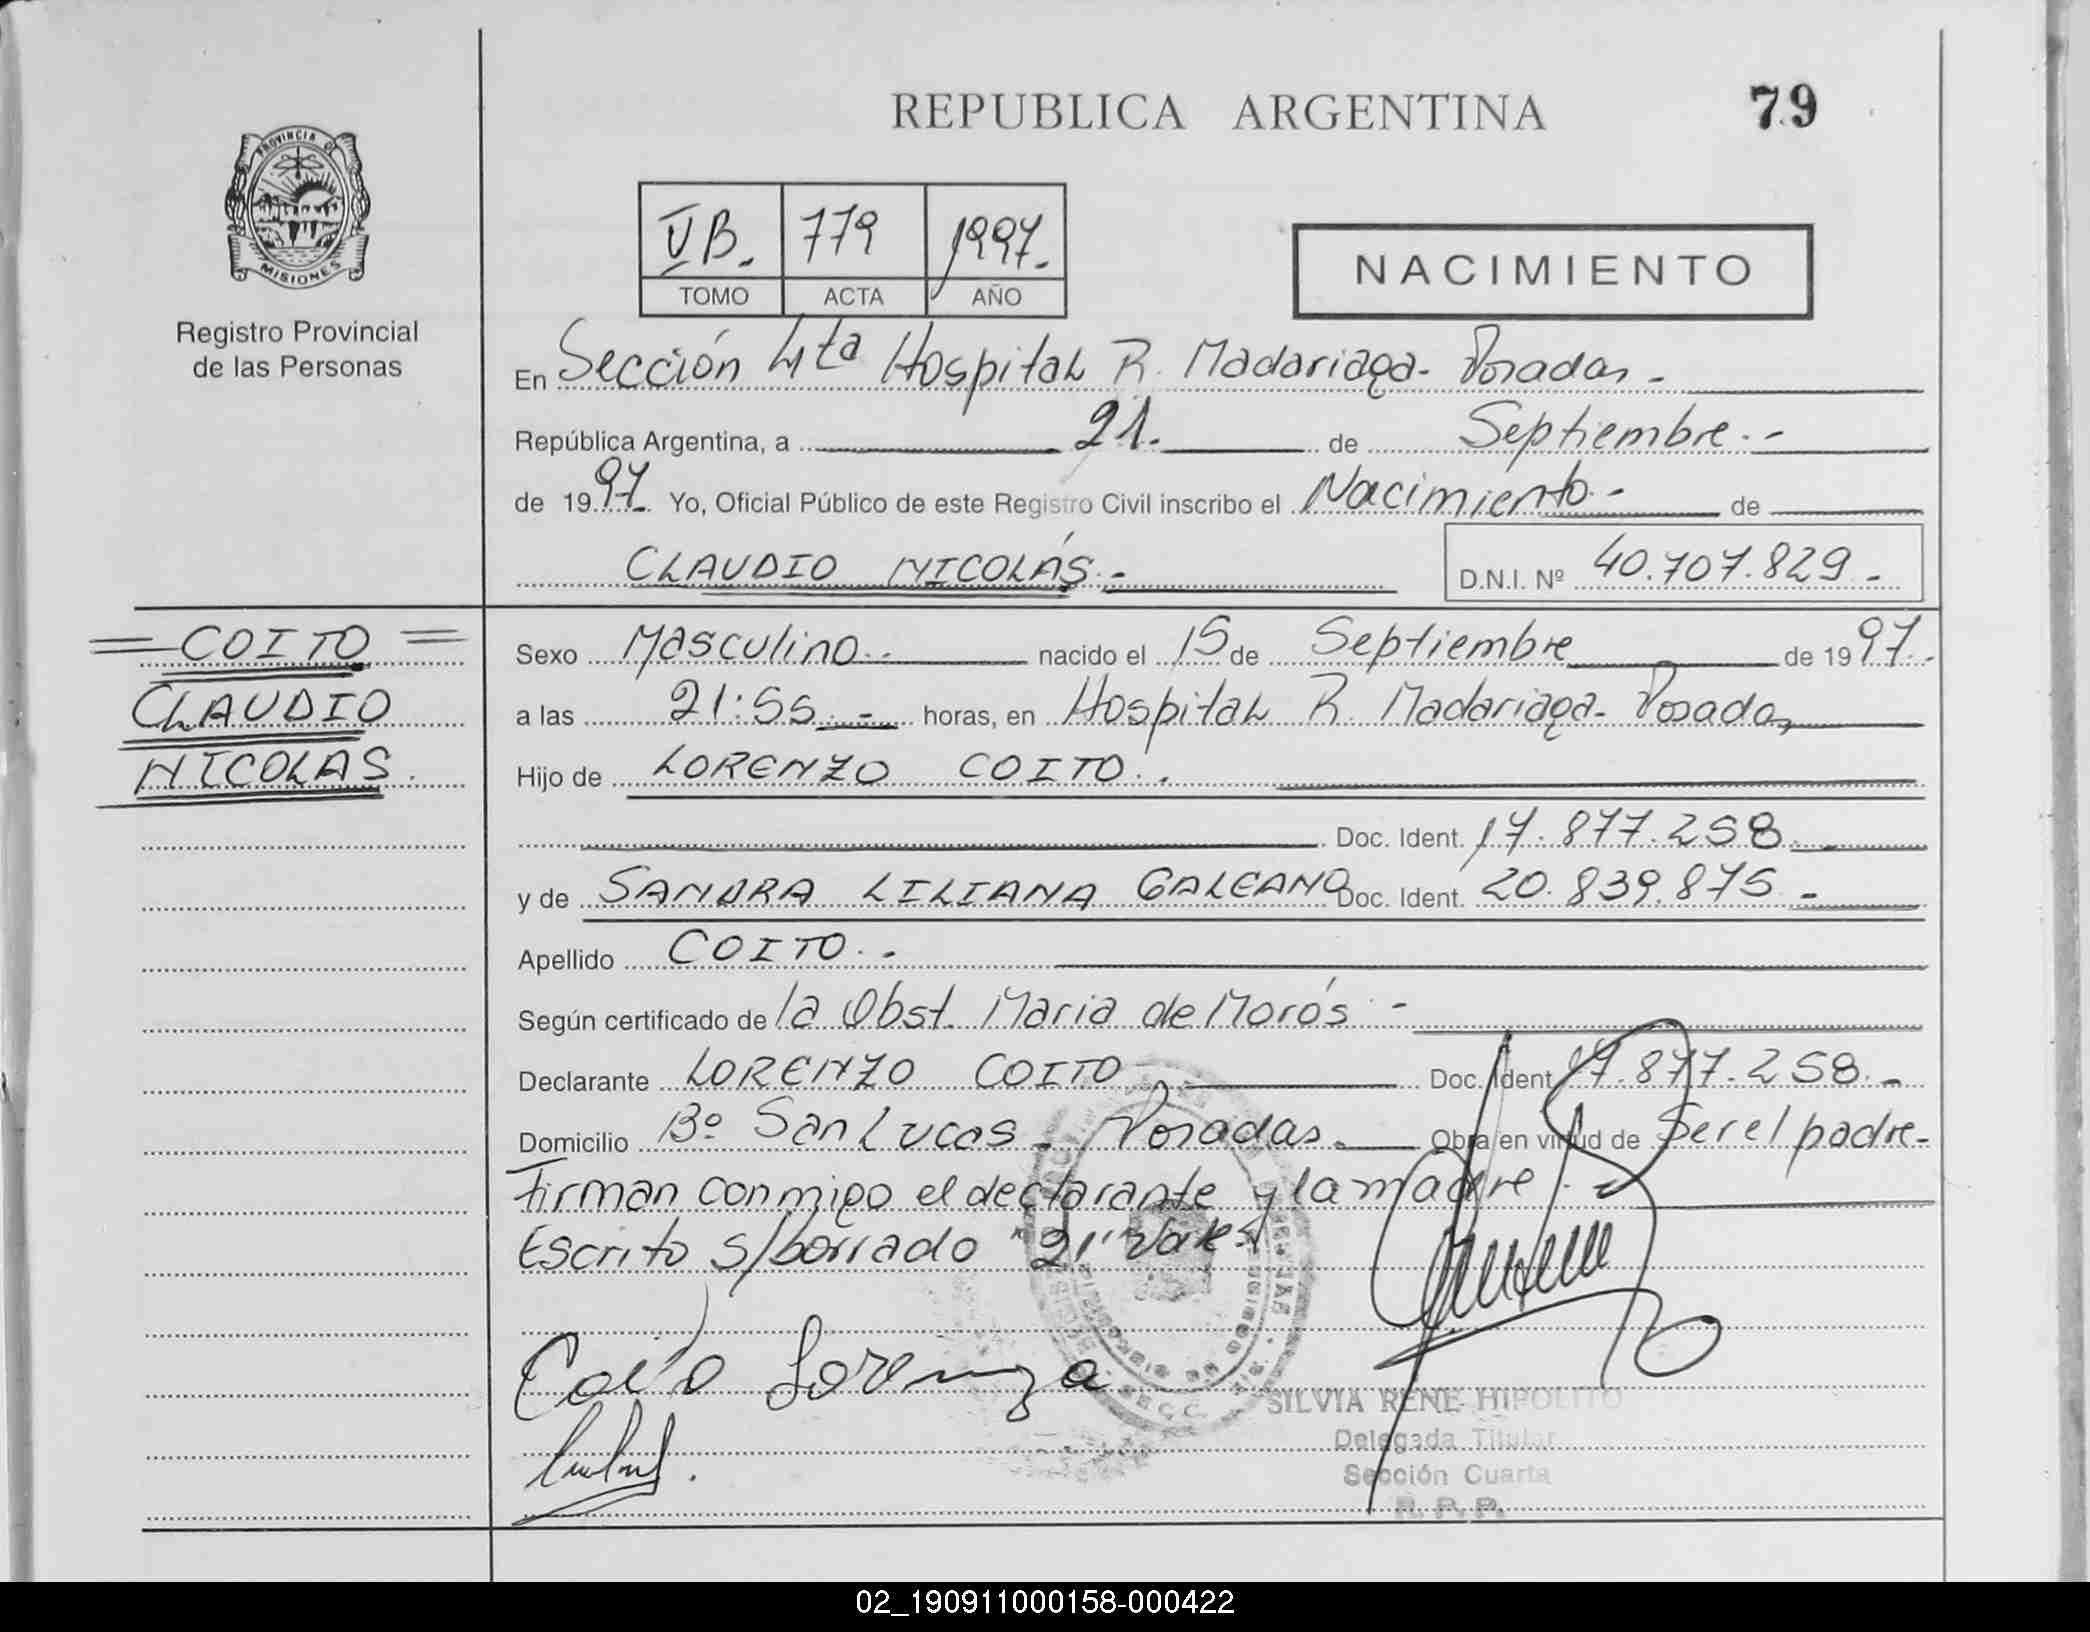 REPUBLICA ARGENTINA
79
PROVINCIA DE
MISIONES
Registro Provincial
de las Personas
VB. 779 1997.
TOMO ACTA AÑO
NACIMIENTO
En Sección 4ta Hospital R. Madariaga - Posadas -
República Argentina, a 21. de Septiembre. -
de 1997. Yo, Oficial Público de este Registro Civil inscribo el Nacimiento - de
CLAUDIO NICOLÁS. -
D.N.I. Nº 40.707.829 -
= COITO =
CLAUDIO
NICOLAS.
Sexo Masculino.- nacido el 15 de Septiembre de 1997.
a las 21:55 - horas, en Hospital R. Madariaga - Posadas
Hijo de LORENZO COITO.
Doc. Ident. 17.877.258
y de SANDRA LILIANA GALEANO Doc. Ident. 20.839.875 -
Apellido COITO. -
Según certificado de la Obst. Maria de Morós -
Declarante LORENZO COITO Doc. Ident. 17.877.258. -
Domicilio Bº San Lucas - Posadas. Obra en virtud de Ser el padre -
Firman conmigo el declarante y la madre. -
Escrito s/borrado "21" Vale.
Coito Lorenzo
SILVIA RENE HIPOLITO
Delegada Titular
Sección Cuarta
R. P. P.
02_190911000158-000422